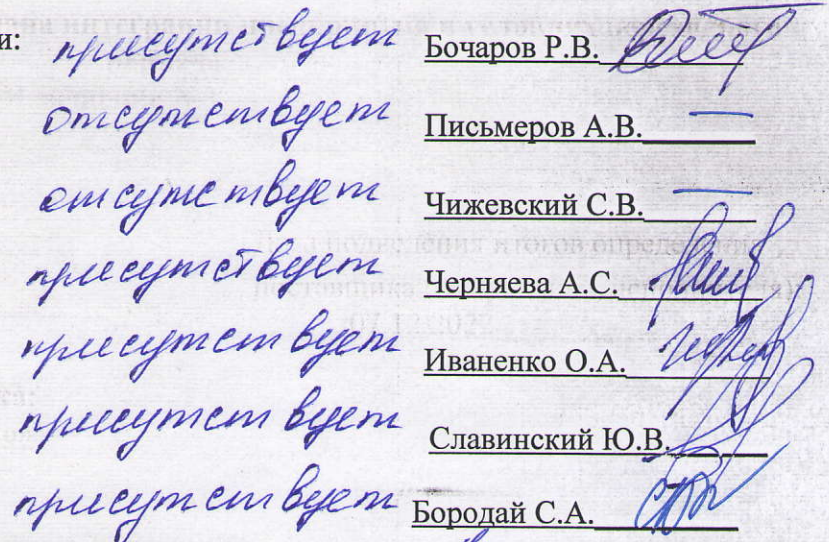 и: присутствует Бочаров Р.В.
отсутствует Письмеров А.В.
отсутствует Чижевский С.В.
присутствует Черняева А.С.
присутствует Иваненко О.А.
присутствует Славинский Ю.В.
присутствует Бородай С.А.